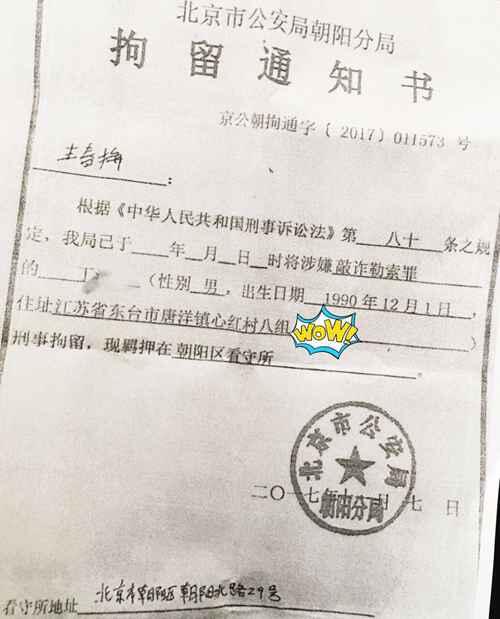 北京市公安局朝阳分局
拘留通知书
京公朝拘通字〔2017〕011573 号
梅：
根据《中华人民共和国刑事诉讼法》第 八十 条之规
定，我局已于 年 月 日 时将涉嫌 敲诈勒索罪
的 丁 （性别 男，出生日期 1990年12月1日，
住址江苏省东台市唐洋镇心红村八组 WOW! ）
刑事拘留，现羁押在 朝阳区看守所
北京市公安局
朝阳分局
二〇一七年十 月 七 日
看守所地址 北京市朝阳区朝阳北路29号